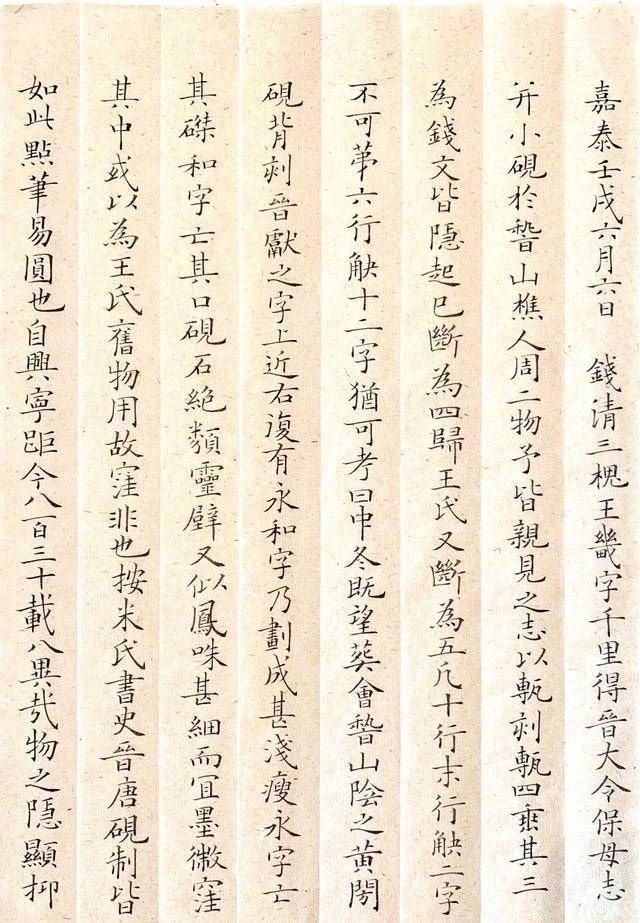 嘉泰壬戌六月六日 錢清三槐王畿字千里得晉大令保母志
并小硯於稽山樵人周二物予皆親見之志以甎刻甎四垂其三
為錢文皆隱起已斷為四歸王氏又斷為五凡十行末行缺二字
不可苐六行缺十二字猶可考曰中冬既望葬會稽山陰之黃閍
硯背刻晉獻之字上近右復有永和字乃劃成甚淺瘦永字亡
其磔和字亡其口硯石絕類靈璧又似鳳咮甚細而宜墨微窪
其中或以為王氏舊物用故窪非也按米氏書史晉唐硯制皆
如此點筆易圓也自興寧距今八百三十載八異哉物之隱顯抑